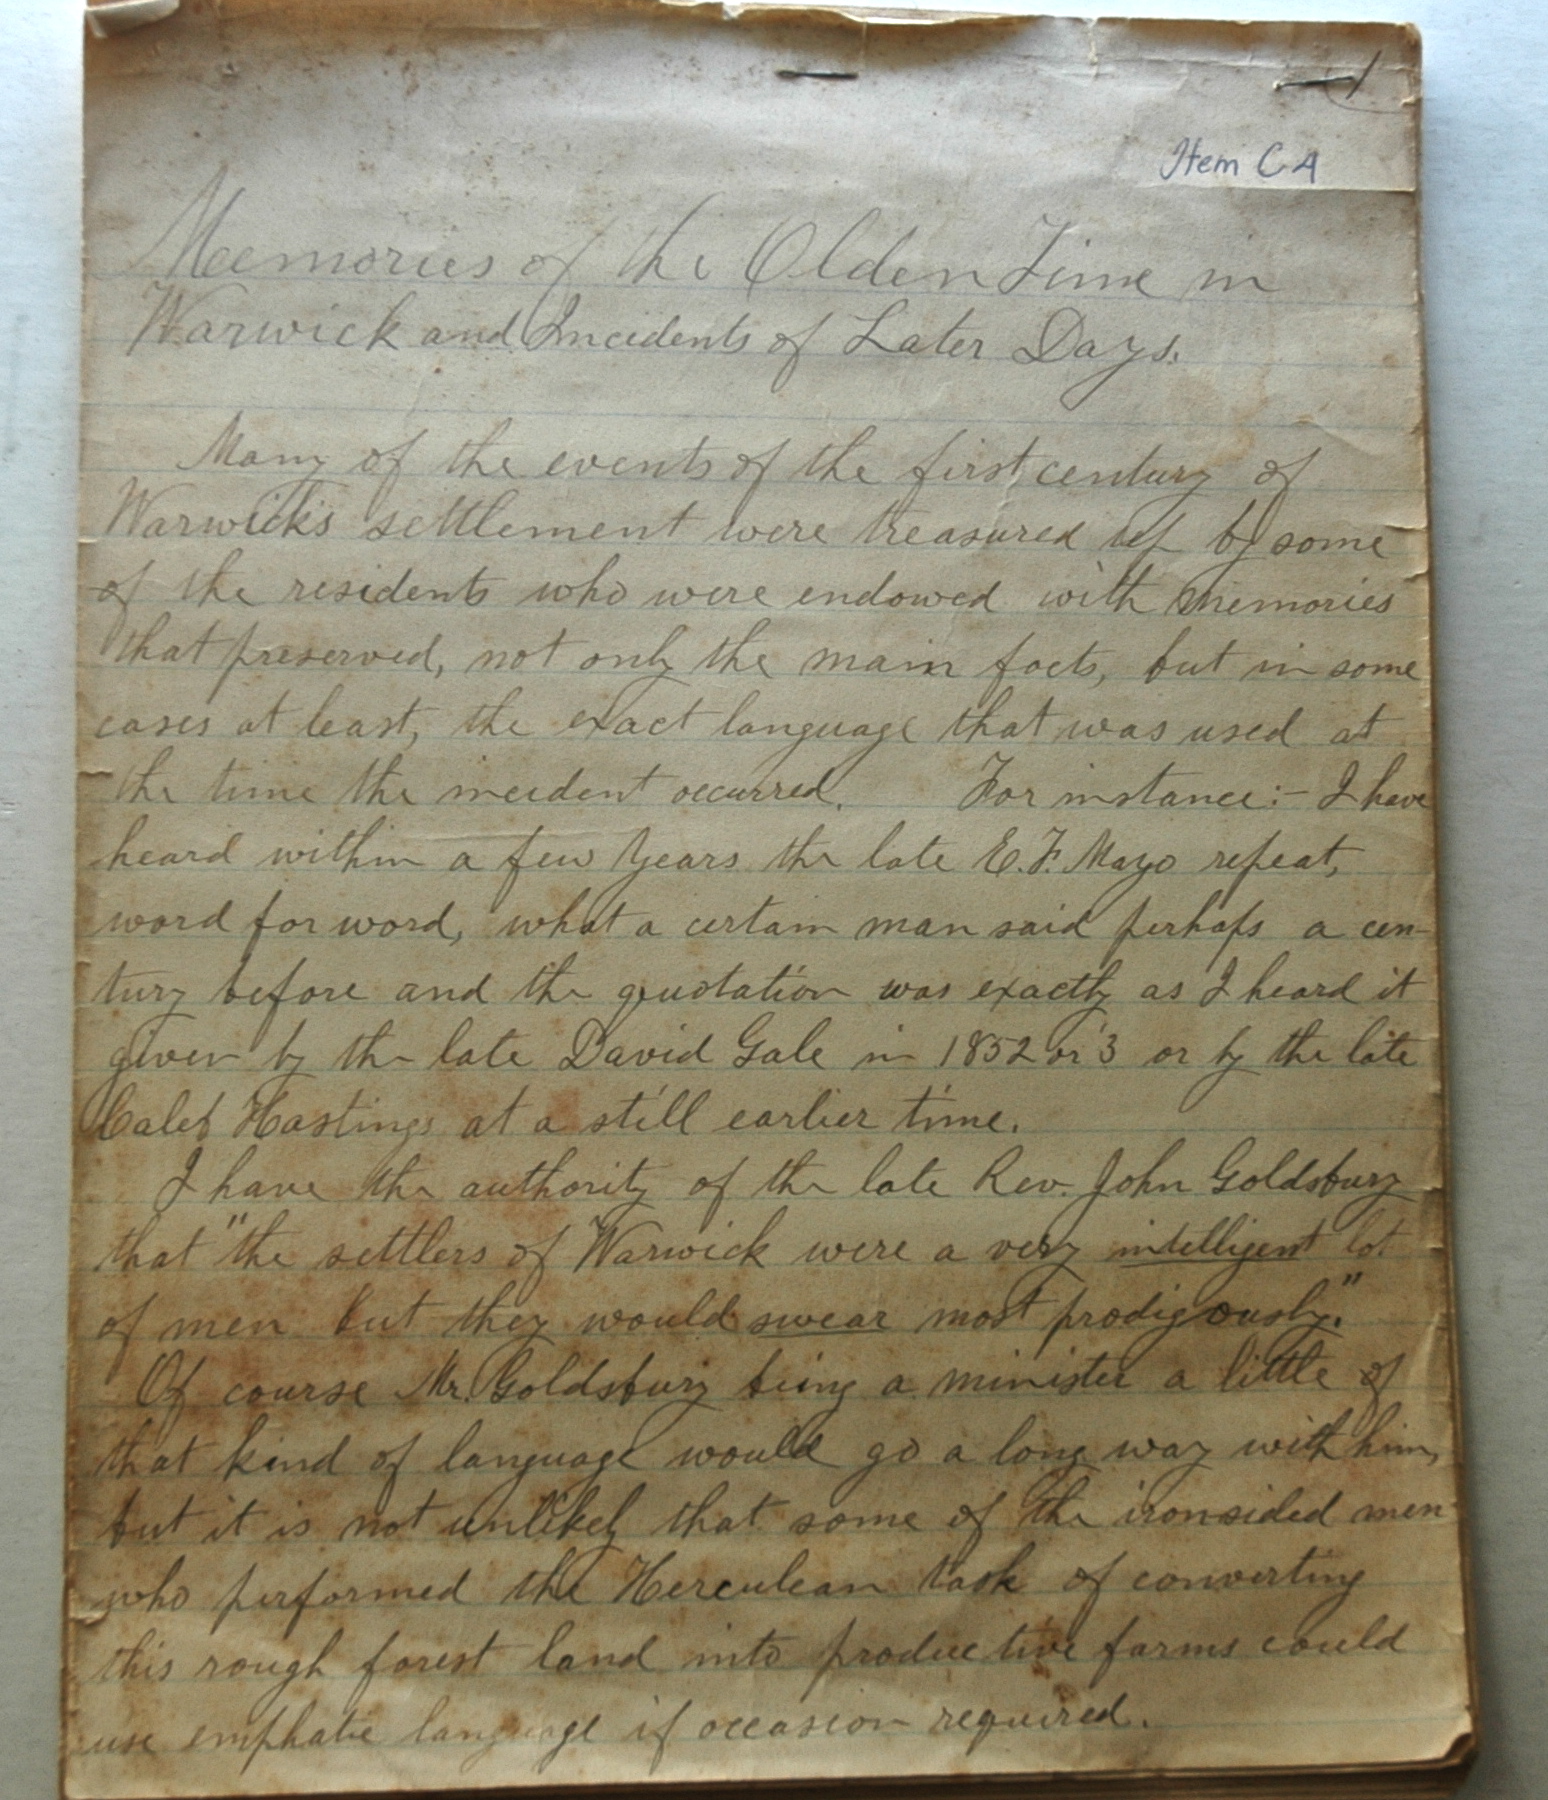 1
Item C A
Memories of the Olden Time in
Warwick and Incidents of Later Days.
Many of the events of the first century of
Warwick's settlement were treasured up by some
of the residents who were endowed with memories
that preserved, not only the main facts, but in some
cases at least, the exact language that was used at
the time the incident occurred. For instance:- I have
heard within a few years the late E. F. Mayo repeat,
word for word, what a certain man said perhaps a cen-
tury before and the quotation was exactly as I heard it
given by the late David Gale in 1852 or 3 or by the late
Caleb Hastings at a still earlier time.
I have the authority of the late Rev. John Goldsbury
that "the settlers of Warwick were a very intelligent lot
of men but they would swear most prodigously."
Of course Mr. Goldsbury being a minister a little of
that kind of language would go a long way with him,
but it is not unlikely that some of the ironsided men
who performed the Herculean task of converting
this rough forest land into productive farms could
use emphatic language if occasion required.